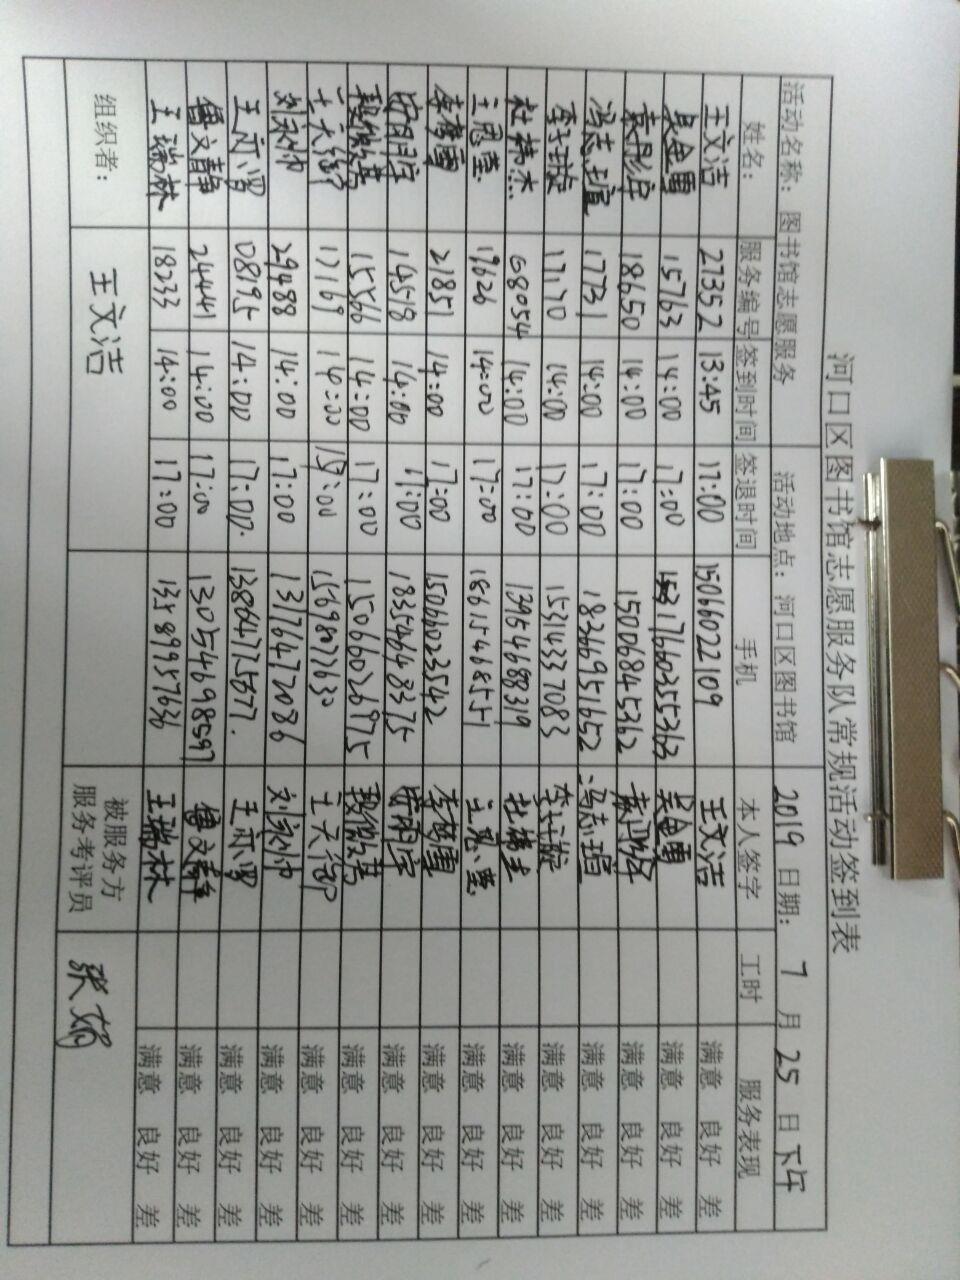 河口区图书馆志愿服务队常规活动签到表
活动名称：图书馆志愿服务 活动地点：河口区图书馆 2019 日期： 7 月 25 日 下午
姓名： 服务编号 签到时间 签退时间 手机 本人签字 工时 服务表现
王文洁 27352 13:45 17:00 15066022109 王文洁 满意 良好 差
吴金雪 15763 14:00 17:00 17660355363 吴金雪 满意 良好 差
18650 14:00 17:00 15006845362 满意 良好 差
冯志瑄 17731 14:00 17:00 18366951652 冯志瑄 满意 良好 差
李子璇 17170 14:00 17:00 15314337083 李子璇 满意 良好 差
杜林杰 08054 14:00 17:00 13954688319 满意 良好 差
王思莹 19626 14:00 17:00 18615468551 王思莹 满意 良好 差
李梦雪 21851 14:00 17:00 15066023542 李梦雪 满意 良好 差
14518 14:00 17:00 18354648375 满意 良好 差
15566 14:00 17:00 15066026975 满意 良好 差
17169 14:00 15:00 15698077630 满意 良好 差
29488 14:00 17:00 13176472086 满意 良好 差
08195 14:00 17:00 13864775377 满意 良好 差
曹文静 24441 14:00 17:00 13054698597 曹文静 满意 良好 差
王瑞林 18233 14:00 17:00 13589957636 王瑞林 满意 良好 差
组织者： 王文洁 被服务方 张娟
服务考评员